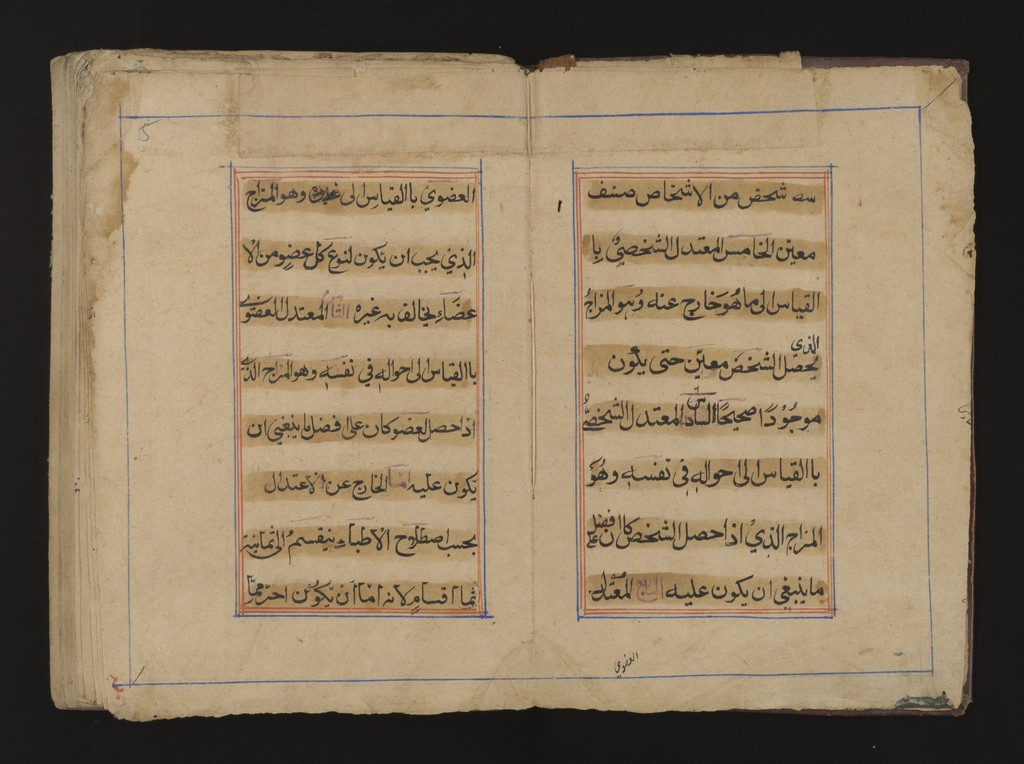 سه شخص من الاشخاص صنف
معين الخامس المعتدل الشخصي با
القياس الى ما هو خارج عنه وهو المزاج
الذي
يحصل الشخص معين حتى يكون
موجودًا صحيحًا السادس المعتدل الشخصي
با القياس الى احواله في نفسه وهو
المزاج الذي اذا حصل الشخص كان افضل
ما ينبغي ان يكون عليه السابع المعتدل
العضوي
5
العضوي با القياس الى غيره وهو المزاج
الذي يجب ان يكون لنوع كل عضو من الا
عضاء يخالف به غيره الثامن المعتدل العضوي
با القياس الى احواله في نفسه وهو المزاج الذي
اذا حصل العضو كان على افضل ما ينبغي ان
يكون عليه اما الخارج عن الاعتدال
بحسب اصطلاح الاطباء ينقسم الى ثمانية
اقسام لانه اما ان يكون احر مما